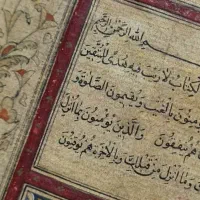 بسم الله الرحمن الرحيم
الكتاب لا ريب فيه هدى للمتقين
يؤمنون بالغيب ويقيمون الصلوة و
هم ينفقون والذين يؤمنون بما انزل
وما انزل من قبلك وبالاخرة هم يوقنون